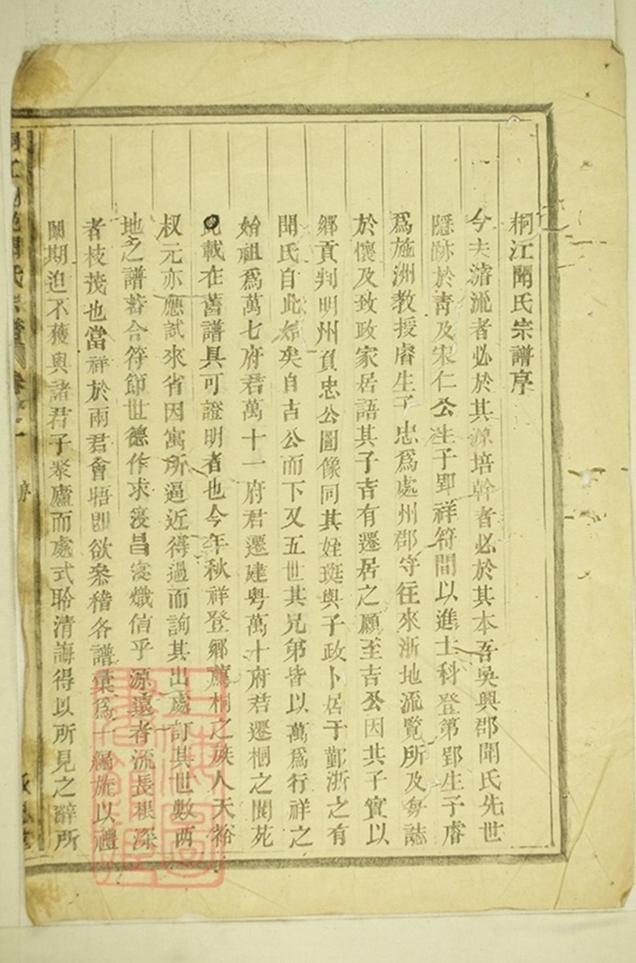 桐江聞氏宗譜序
今夫濬流者必於其源培幹者必於其本吾吳興郡聞氏先世
隱跡於靑及宋仁公生于郢祥符間以進士科登第郢生子睿
爲施洲教授睿生子忠爲處州郡守往來浙地流覽所及每誌
於懷及致政家居語其子吉有遷居之願至吉公因其子實以
鄉貢判明州負忠公圖像同其姪珽與子政卜居于鄞浙之有
聞氏自此始矣自吉公而下又五世其兄弟皆以萬爲行祥之
始祖爲萬七府君萬十一府君遷建粤萬十府君遷桐之閬苑
載在舊譜具可證明者也今年秋祥登鄉薦桐之族人天裕
叔元亦應試來省因寓所逼近得過而詢其出處訂其世數兩
地之譜若合符節世德作求寖昌寖熾信乎源遠者流長根深
者枝茂也當祥於兩君會晤即欲叅稽各譜彙爲一編旋以禮
闈期迫不獲與諸君子聚廬而處式聆清誨得以所見之辭所
氏宗譜 卷之一 序